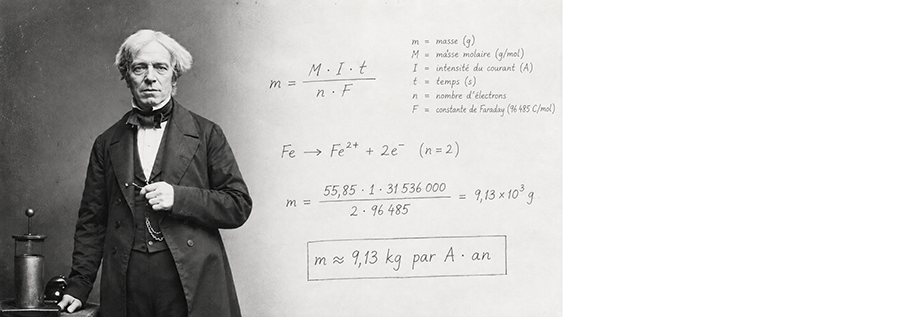 m = masse (g)
M = masse molaire (g/mol)
I = intensité du courant (A)
t = temps (s)
n = nombre d'électrons
F = constante de Faraday (96 485 C/mol)
m = M · I · t / n · F
Fe → Fe²⁺ + 2e⁻ (n = 2)
m = 55,85 · 1 · 31 536 000 / 2 · 96 485 = 9,13 × 10³ g
m ≈ 9,13 kg par A · an